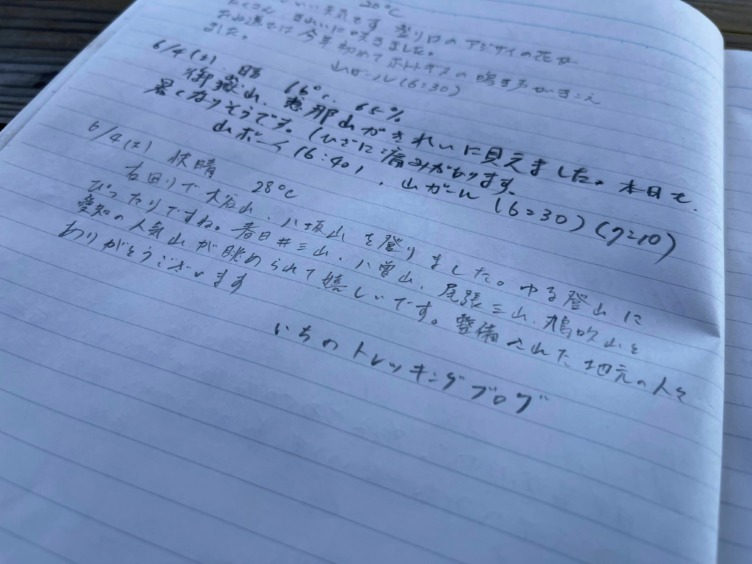 20℃
いい天気です 登り口のアジサイの花が
たくさん きれいに咲きました。
では今年初めてホトトギスの鳴き声がきこえ
ました。
山ガール(6:30)
6/4(土) 晴 16℃ 65%
御嶽山、恵那山がきれいに見えました。本日も、
暑くなりそうです。(ひざに痛みがあります。
山ボーイ(6:40)、山ガール(6:30)(7:10)
6/4(土) 快晴 28℃
右回りで大谷山、八坂山を登りました。ゆる登山に
ぴったりですね。春日井三山、八曽山、尾張三山、鳩吹山と
愛知の人気山が眺められて嬉しいです。整備された地元の人々
ありがとうございます
いちのトレッキングブログ